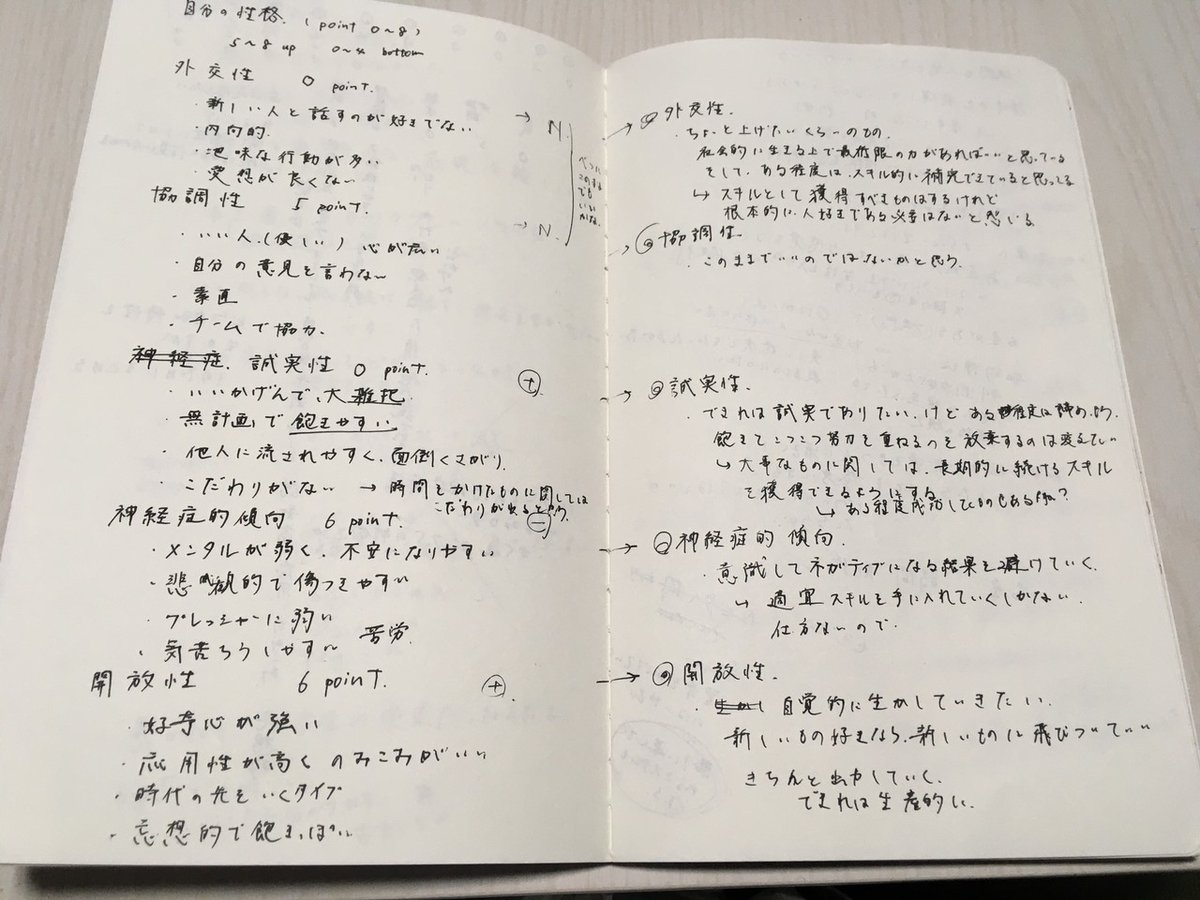 自分の性格. (point 0~8)
5~8 up 0~4 bottom
外交性 0 point.
・新しい人と話すのが好きでない → N
・内向的.
・地味な行動が多い
・愛想が良くない
べつに
このまま
でも
いい
かな.
協調性 5 point. → N.
・いい人.(優しい) 心が広い
・自分の意見を言わない
・素直
・チームで協力.
神経症. 誠実性 0 point. +
・いいかげんで、大雑把
・無計画で飽きやすい
・他人に流されやすく、面倒くさがり.
・こだわりがない → 時間をかけたものに関しては
こだわりが出ると思う.
神経症的傾向 6 point. −
・メンタルが弱く、不安になりやすい
・悲観的で傷つきやすい
・プレッシャーに弱い
・気苦ろうしやすい 苦労.
開放性 6 point. +
・好奇心が強い
・応用性が高く のみこみがいい
・時代の先をいくタイプ
・妄想的で飽きっぽい
→ 外交性.
・ちょっと上げたいくらいのもの.
社会的に生きる上で最低限の力があればいいと思っている
そして、ある程度は、スキル的に補完できていると思ってる
↳ スキルとして獲得すべきものはするけれど
根本的に人好きである必要はないと感じる
→ 協調性.
・このままでいいのではないかと思う.
→ 誠実性.
・できれば誠実でありたい、けど ある程度は諦め
飽きてこつこつ努力を重ねるのを放棄するのは
↳ 大事なものに関しては、長期的に続けるスキル
を獲得できるようにする
↳ ある程度成功してるのもあるかな?
→ 神経症的傾向.
・意識してネガティブになる結果を避けていく.
↳ 適宜スキルを手に入れていくしかない.
仕方ないので.
→ 開放性.
・生かし 自覚的に生かしていきたい.
新しいもの好きなら、新しいものに飛びついてい
きちんと出力していく.
できれば生産的に.